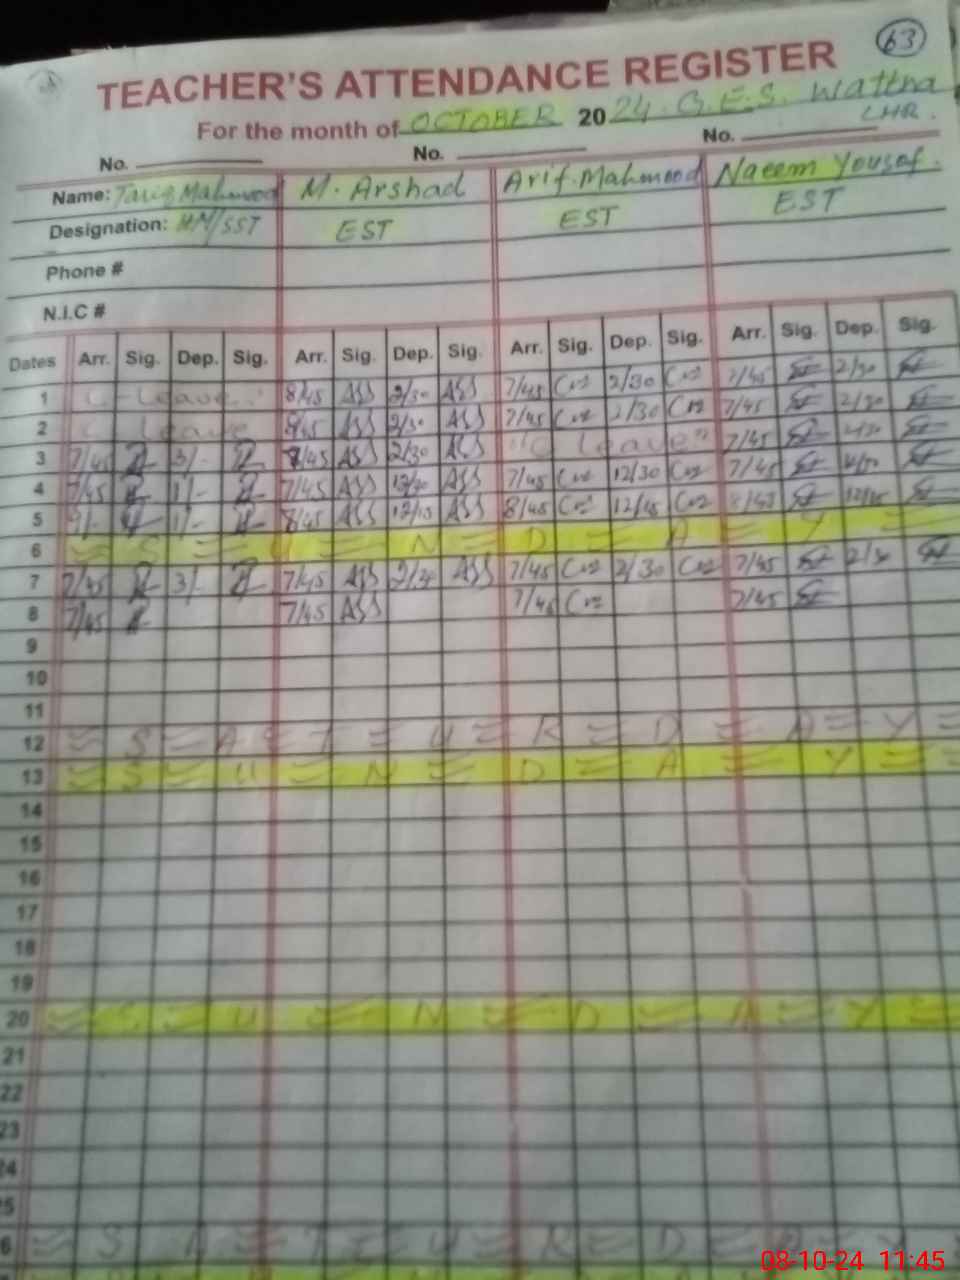 63
TEACHER'S ATTENDANCE REGISTER
For the month of OCTOBER 2024. G.E.S. Wattna
LHR.
No. No. No.
Name: Tariq Mahmood M. Arshad Arif. Mahmood Naeem Yousaf.
Designation: HM/SST EST EST EST
Phone #
N.I.C #
Dates Arr. Sig. Dep. Sig. Arr. Sig. Dep. Sig. Arr. Sig. Dep. Sig. Arr. Sig. Dep. Sig.
1 C leave 8/45 2/30 7/45 2/30 7/45 2/30
2 C leave 8/45 2/30 7/45 2/30 7/45 2/30
3 7/45 3/- 7/45 2/30 "C leave" 7/45
4 7/45 1/- 7/45 12/30 7/45 12/30 7/45
5 9/- 1/- 8/45 12/15 8/45 12/15 8/45 12/15
6 = S = U = N = D = A = Y =
7 7/45 3/- 7/45 2/30 7/45 2/30 7/45 2/30
8 7/45 7/45 7/45 7/45
9
10
11
12 = S = A = T = U = R = D = A = Y =
13 = S = U = N = D = A = Y =
14
15
16
17
18
19
20 = S = U = N = D = A = Y =
21
22
23
24
25
6 = S = A = T = U = R = D = A = Y
08-10-24 11:45